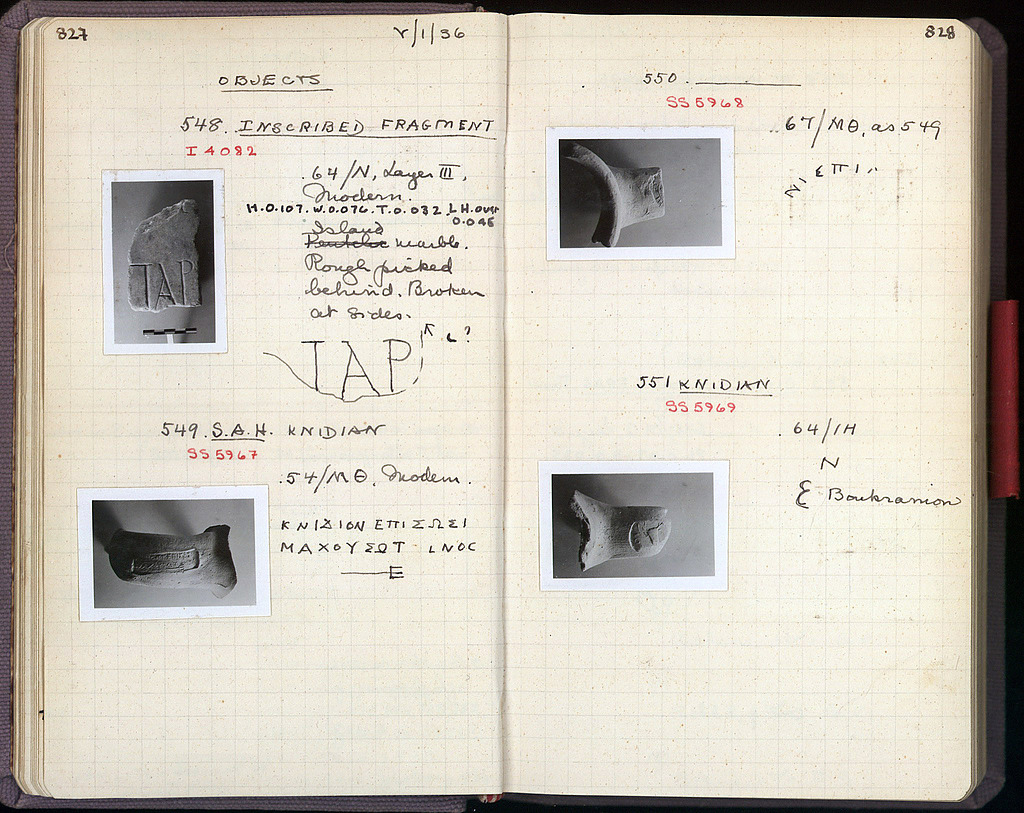 827
V/1/36
OBJECTS
548. INSCRIBED FRAGMENT
I 4082
64/N, Layer III,
Modern.
H.0.107. W.0.076. T.0.032. L.H. over
0.045
Island
Pentelic marble.
Rough picked
behind. Broken
at sides.
ΤΑΡ
ΤΑΡ
?
549. S.A.H. KNIDIAN
SS 5967
54/ΜΘ, Modern.
ΚΝΙΔΙΟΝ ΕΠΙ ΣΩΣΙ
ΜΑΧΟΥ ΣΩΤ
828
550.
SS 5968
67/ΜΘ, as 549
ΕΠΙ
551 KNIDIAN
SS 5969
64/ΙΗ
N
Boukranion